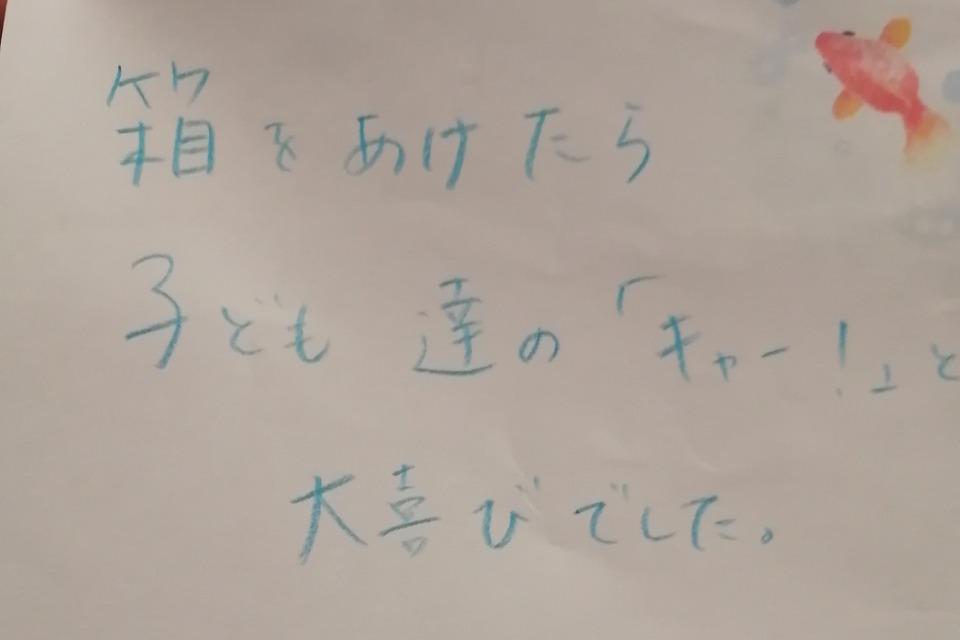 箱をあけたら
子ども達の「キャー!」と
大喜びでした。